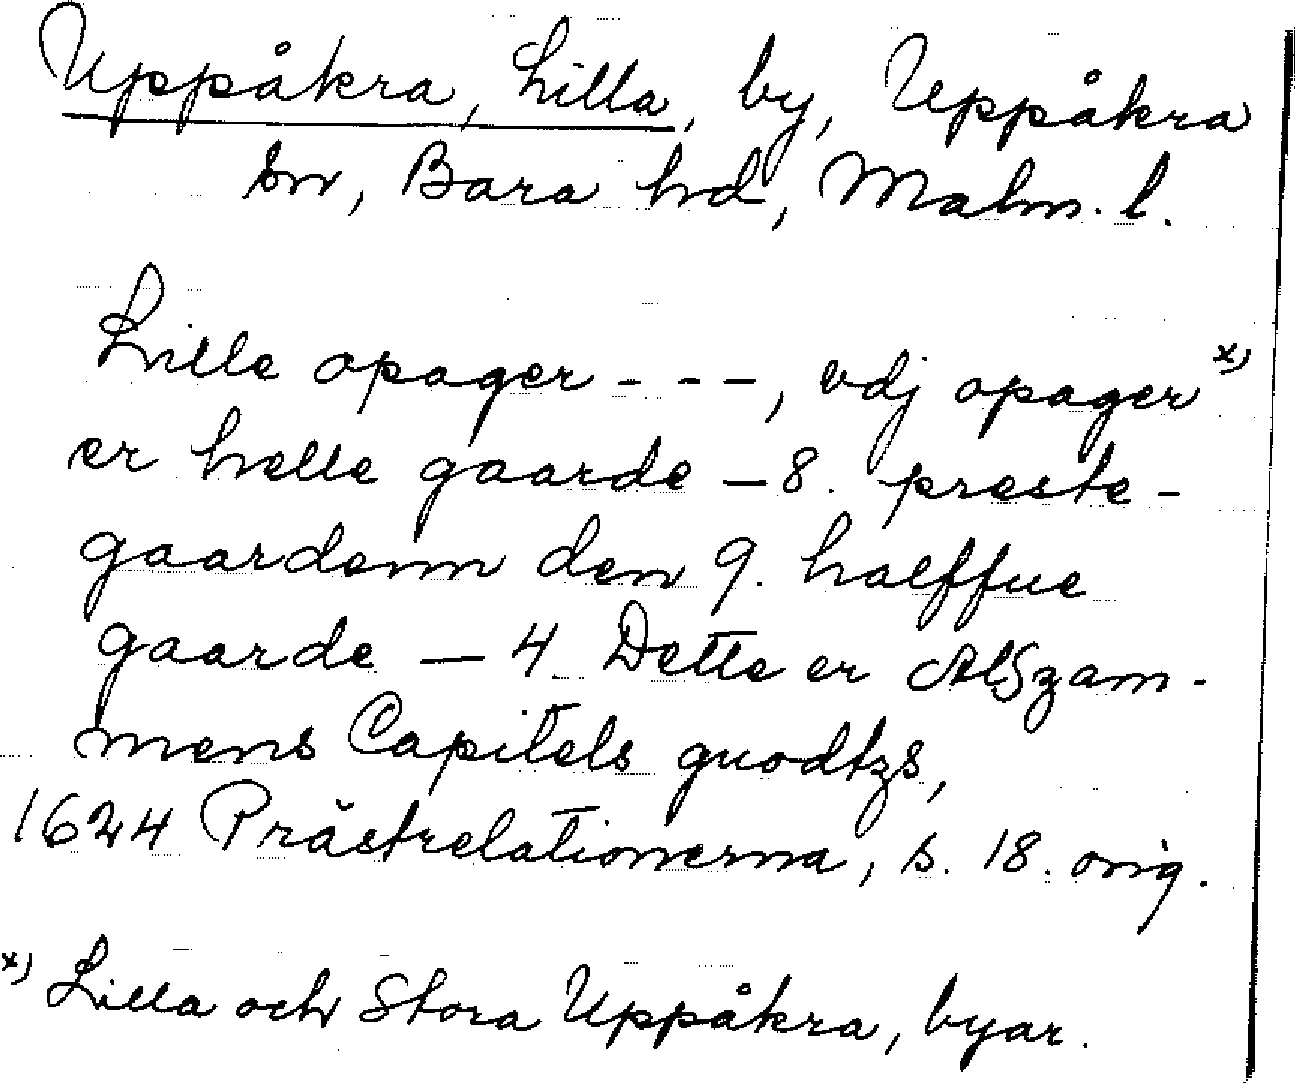 Uppåkra, Lilla, by, Uppåkra
sn, Bara hd, Malm. l.
Lille opager - - -, vdj opager x)
er helle gaarde – 8. preste-
gaardenn den 9. halffue
gaarde – 4 Dette er Alszam-
mens Capitels guodtzs,
1624 Prästrelationerna, s. 18. orig.
x) Lilla och Stora Uppåkra, byar.